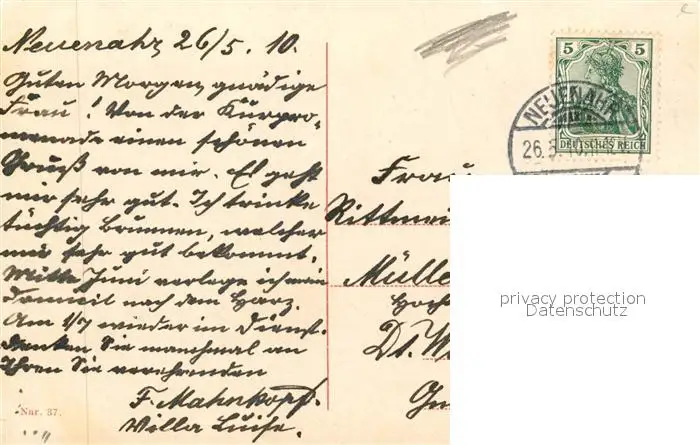 Neuenahr, 26/5. 10.
Guten Morgen, gnädige
Frau! Von der Kurpro-
menade einen schönen
Gruß von mir. Es geht
mir sehr gut. Ich trinke
tüchtig Brunnen, welcher
mir sehr gut bekommt.
Mitte Juni verlege ich mein
Domizil nach dem Harz.
Am 1/7 wieder im Dienst.
Denken Sie manchmal an
Ihren Sie verehrenden
F. Mahnkopf.
Villa Luise.
Nur. 37.
5 5
DEUTSCHES REICH
NEUENAHR
26.5.10.
Frau
Rittmei
Mülle
Hoch
Dt. W
privacy protection
Datenschutz